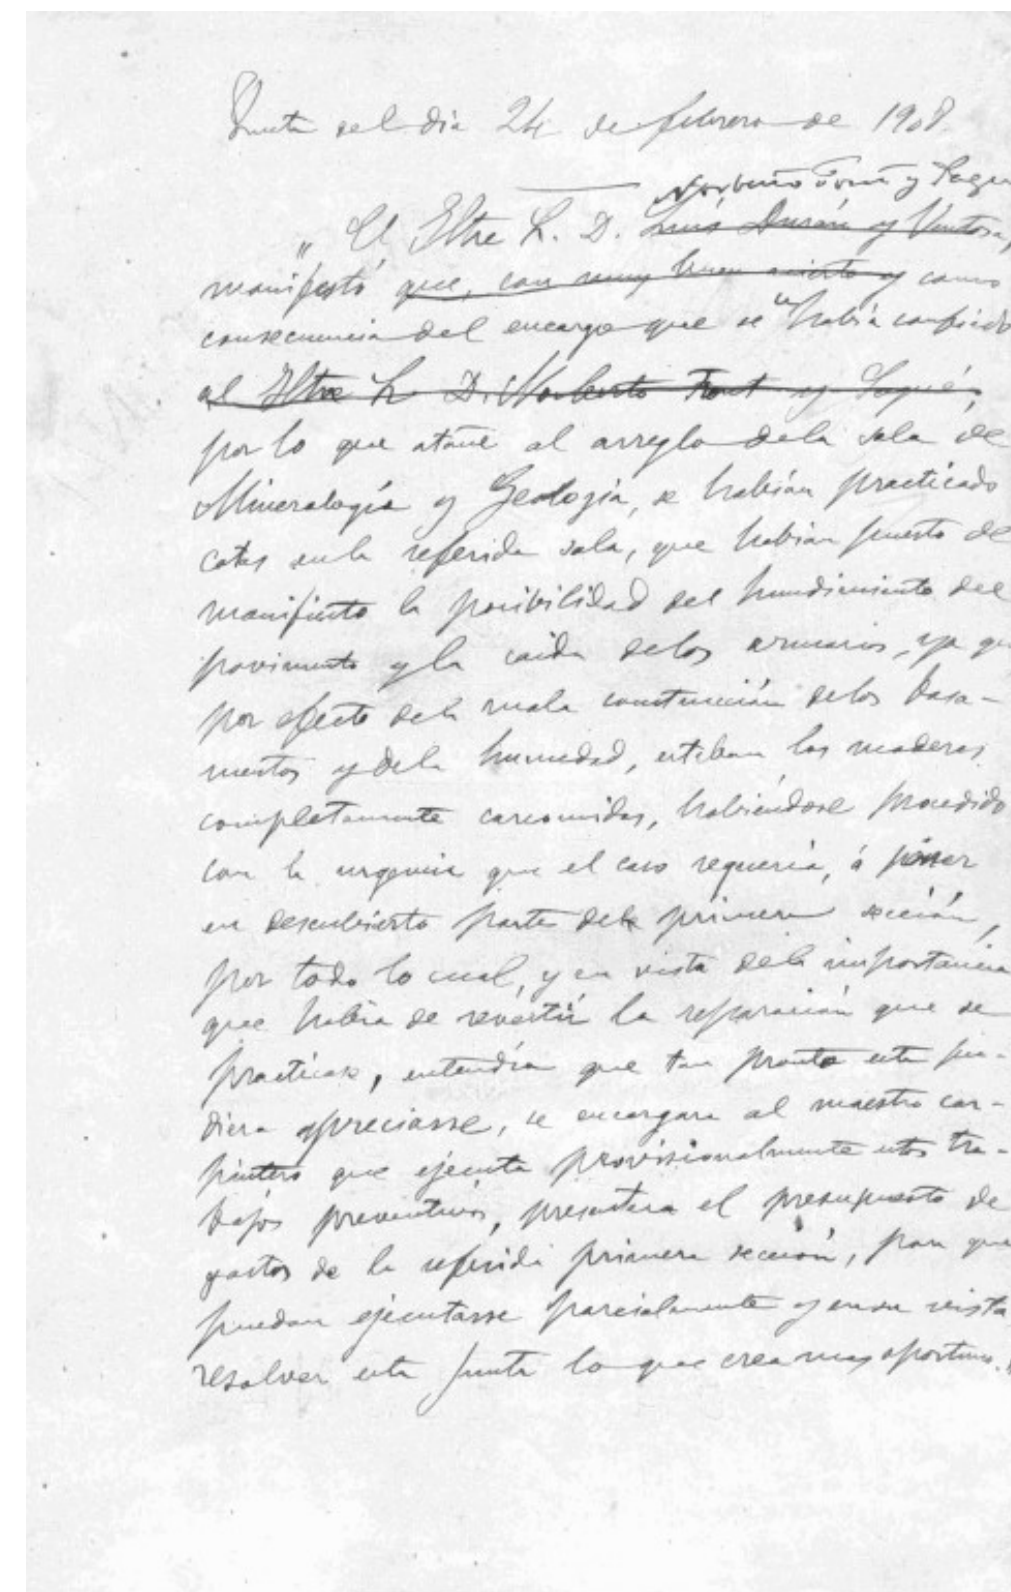 Junta del dia 24 de febrero de 1908
Norberto Font y Sagué
" El Iltre S. D. Luís Durán y Ventosa,
manifestó que, con muy buen acierto y como
consecuencia del encargo que se le había confiado
al Iltre S. D. Norberto Font y Sagué,
por lo que atañe al arreglo de la sala de
Mineralogía y Geología, se habían practicado
catas en la referida sala, que habían puesto de
manifiesto la posibilidad del hundimiento del
pavimento y la caída de los armarios, ya que
por efecto de la mala construcción de los basa-
mentos y de la humedad, estaban las maderas
completamente carcomidas, habiéndose procedido
con la urgencia que el caso requería, á poner
en descubierto parte de la primera sección,
por todo lo cual, y en vista de la importancia
que habia de revestir la reparación que se
practicase, entendía que tan pronto esta pu-
diera apreciarse, se encargara al maestro car-
pintero que ejecuta provisionalmente estos tra-
bajos preventivos, presentara el presupuesto de
gastos de la referida primera sección, para que
puedan ejecutarse parcialmente y en su vista
resolver esta Junta lo que crea mas oportuno. "